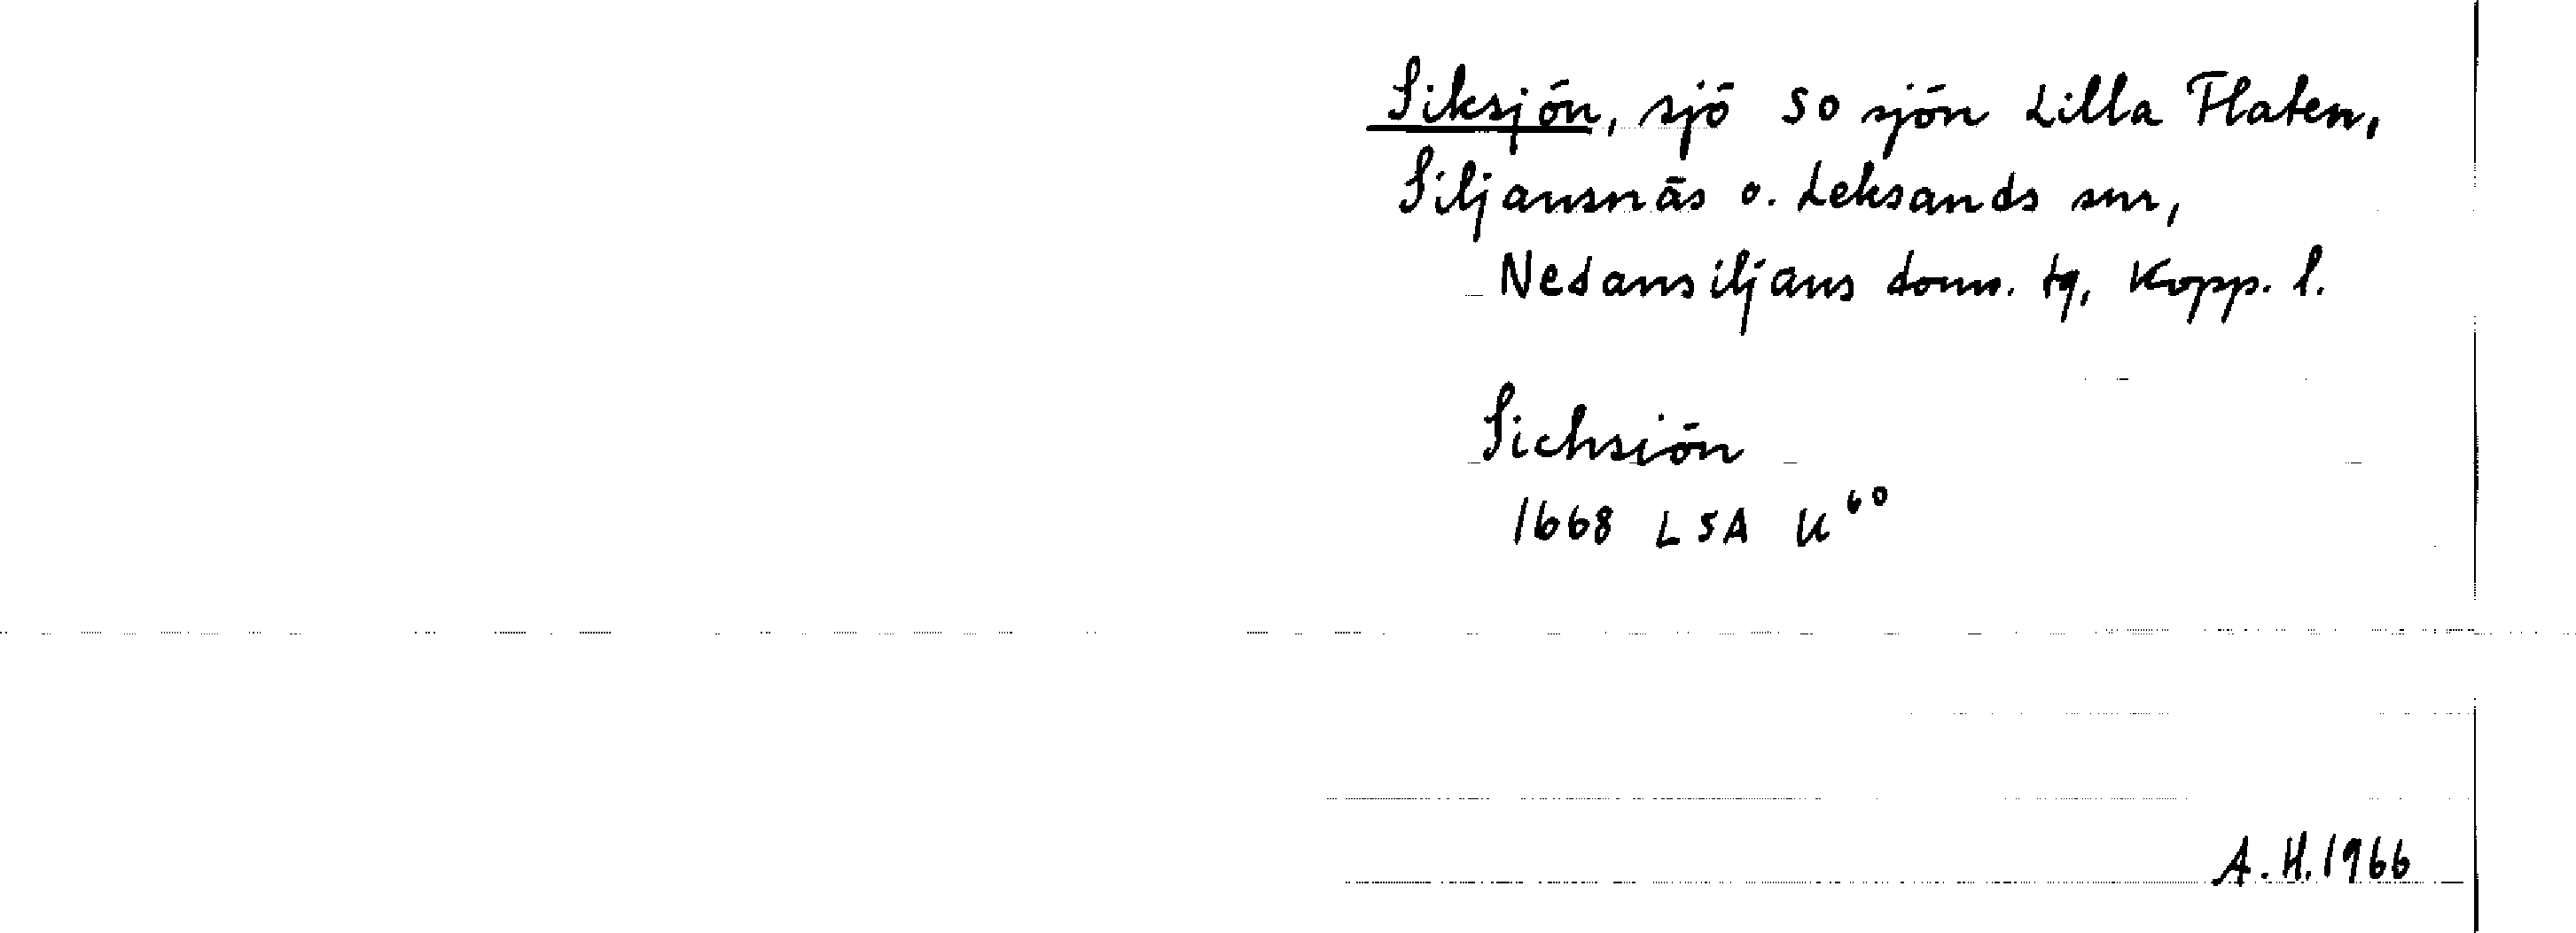 Siksjön, sjö SO sjön Lilla Flaten,
Siljansnäs o. Leksands snr,
Nedansiljans doms. tg, Kopp. l.
Sichsiön
1668 LSA U⁶⁰
A. H. 1966